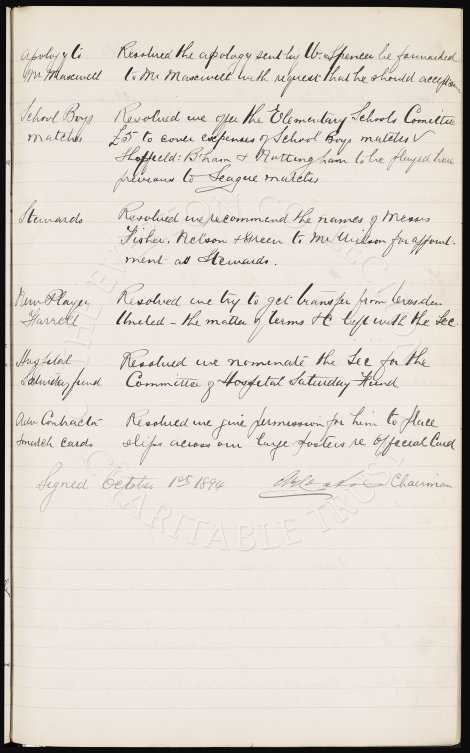 Apology to Resolved the apology sent by W. Spencer be forwarded
Mr Maxwell to Mr Maxwell with request that he should accept same
School Boys Resolved we offer the Elementary Schools Comittee
matches £5 to cover expenses of School Boys matches v
Sheffield: B'ham & Nottingham to be played here
previous to League matches
Stewards Resolved we recommend the names of Messrs
Fisher, Nelson & Green to Mr Wilson for appoint-
ment as Stewards.
New Player Resolved we try to get transfer from
Farrell United - the matter of terms &c left with the Sec.
Hospital Resolved we nominate the Sec for the
Saturday fund Committee of Hospital Saturday Fund
Adv Contractor Resolved we give permission for him to place
match cards slips across our large posters re Official Card
Signed October 1st 1894 Chairman
THE EVERTON COLLECTION
CHARITABLE TRUST